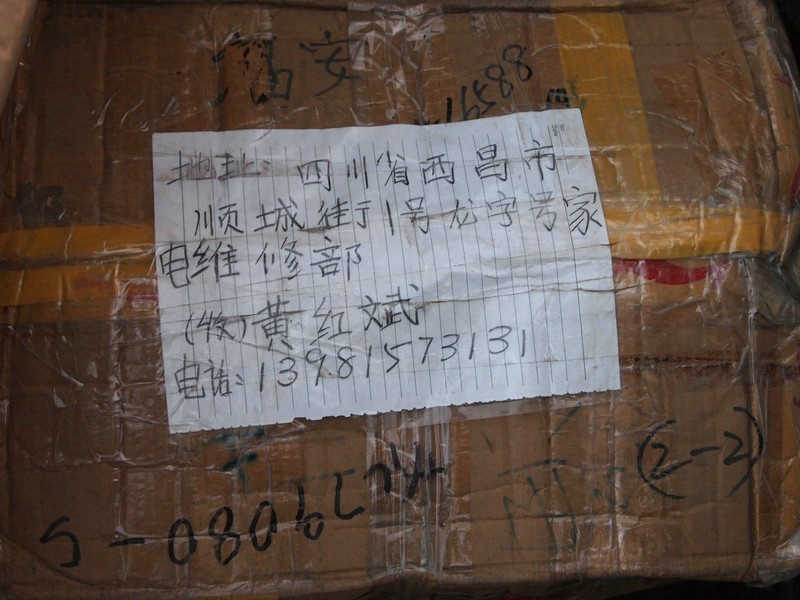 安
16588
地址: 四川省西昌市
顺城街1号龙字号家
电维修部
(收)黄红斌
电话:13981573131
(2-2)